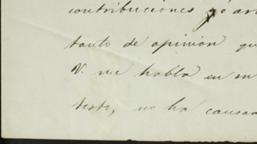 contribuciones yo
tanto de opinión qu
V. me habla en su
texto, me ha causa